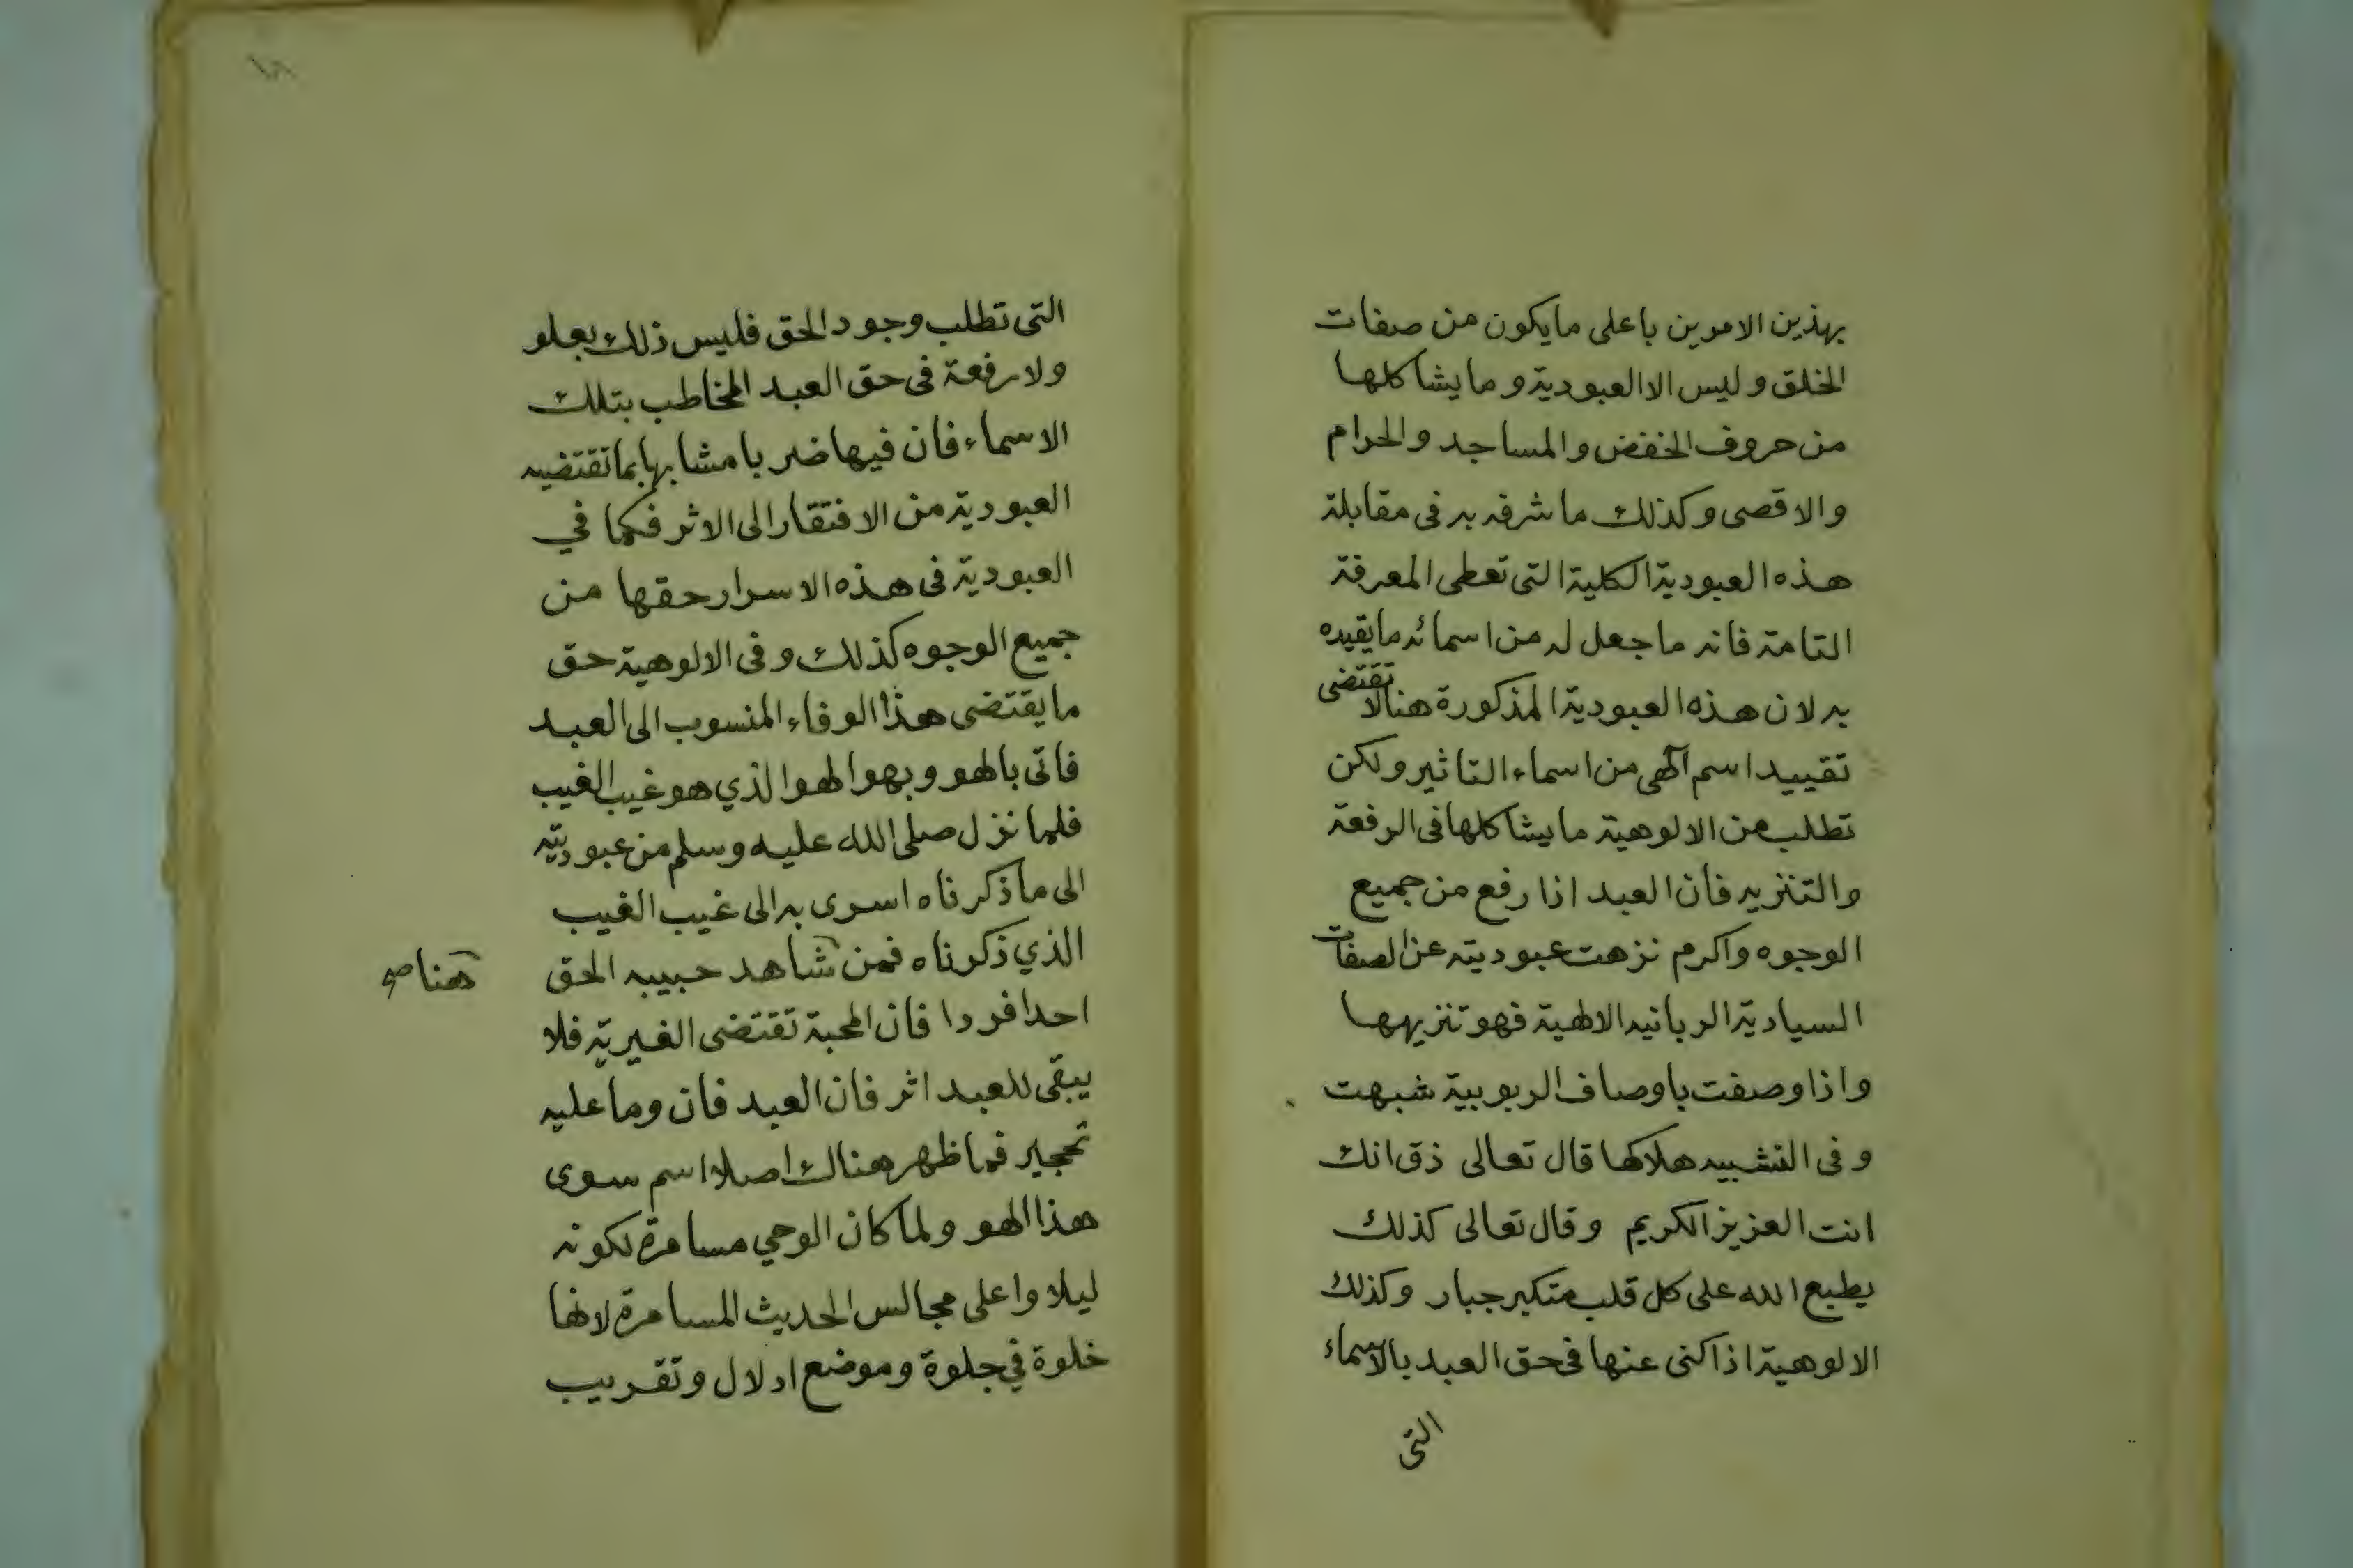 بهذين الامرين باعلى ما يكون من صفات
الخلق وليس الا العبودية وما يشاكلها
من حروف الخفض والمساجد والحرام
والاقصى وكذلك ما شرفه به فى مقابلة
هذه العبودية الكلية التى تعطى المعرفة
التامة فانه ما جعل له من اسمائه ما يقيده
به لان هذه العبودية المذكورة هنا لا تقتضى
تقييد اسم آلهى من اسماء التاثير ولكن
تطلب من الالوهية ما يشاكلها فى الرفعة
والتنزيه فان العبد اذا رفع من جميع
الوجوه واكرم نزهت عبوديته عن الصفات
السيادية الربانيه الالهية فهو تنزيهها
واذا وصفت باوصاف الربوبية شبهت
وفى التشبيه هلاكها قال تعالى ذق انك
انت العزيز الكريم وقال تعالى كذلك
يطبع الله على كل قلب متكبر جبار وكذلك
الالوهية اذا كنى عنها فى حق العبد بالاسماء
التى
١٨
التى تطلب وجود الحق فليس ذلك بعلو
ولا رفعة فى حق العبد المخاطب بتلك
الاسماء فان فيها ضربا مشابها بما تقتضيه
العبودية من الافتقار الى الاثر فكما في
العبودية فى هذه الاسرار حقها من
جميع الوجوه كذلك وفى الالوهية حق
ما يقتضى هذا الوفاء المنسوب الى العبد
فاتى بالهو وبهو الهو الذي هو غيب الغيب
فلما نزل صلى الله عليه وسلم من عبوديته
الى ما ذكرناه اسرى به الى غيب الغيب
الذي ذكرناه فمن شاهد حبيبه الحق
هنا صح
احدا فردا فان المحبة تقتضى الغيرية فلا
يبقى للعبد اثر فان العبد فان وما عليه
تحجير فما ظهر هناك اصلا اسم سوى
هذا الهو ولما كان الوحي مسامرة لكونه
ليلا واعلى مجالس الحديث المسامرة لانها
خلوة في جلوة وموضع ادلال وتقريب